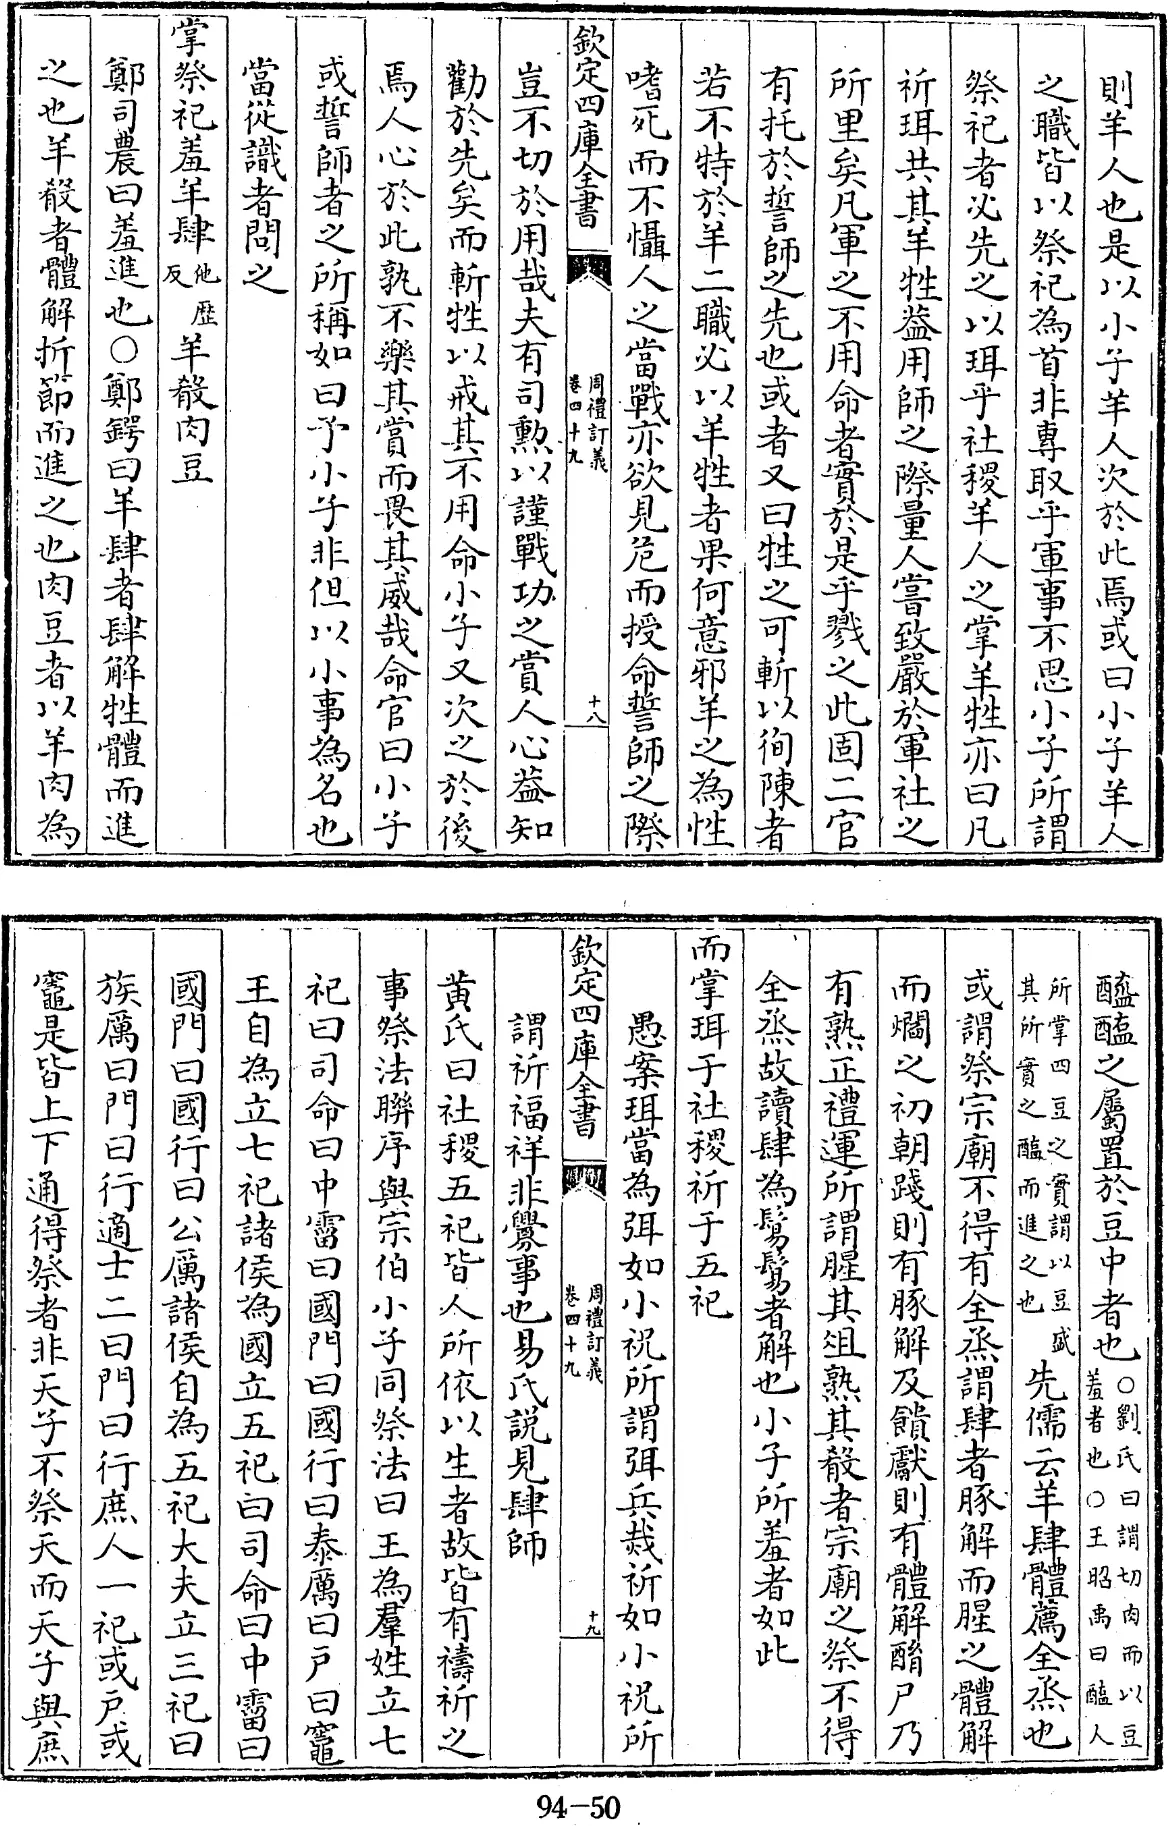 則羊人也是以小子羊人次於此焉或曰小子羊人
之職皆以祭祀為首非專取乎軍事不思小子所謂
祭祀者必先之以珥乎社稷羊人之掌羊牲亦曰凡
祈珥共其羊牲蓋用師之際量人嘗致嚴於軍社之
所里矣凡軍之不用命者實於是乎戮之此固二官
有托於誓師之先也或者又曰牲之可斬以徇陳者
若不特於羊二職必以羊牲者果何意邪羊之為性
嗜死而不懾人之當戰亦欲見危而授命誓師之際
欽定四庫全書
周禮訂義
卷四十九
十八
豈不切於用哉夫有司勲以謹戰功之賞人心益知
勸於先矣而斬牲以戒其不用命小子又次之於後
焉人心於此孰不樂其賞而畏其威哉命官曰小子
或誓師者之所稱如曰予小子非但以小事為名也
當從識者問之
掌祭祀羞羊肆他歷反羊殽肉豆
鄭司農曰羞進也○鄭鍔曰羊肆者肆解牲體而進
之也羊殽者體解折節而進之也肉豆者以羊肉為
醓醢之屬置於豆中者也○劉氏曰謂切肉而以豆羞者也○王昭禹曰醢人
所掌四豆之實謂以豆盛其所實之醢而進之也先儒云羊肆體薦全烝也
或謂祭宗廟不得有全烝謂肆者豚解而腥之體解
而爓之初朝踐則有豚解及饋獻則有體解酳尸乃
有熟正禮運所謂腥其俎熟其殽者宗廟之祭不得
全烝故讀肆為鬄鬄者解也小子所羞者如此
而掌珥于社稷祈于五祀
愚案珥當為弭如小祝所謂弭兵烖祈如小祝所
欽定四庫全書
周禮訂義
卷四十九
十九
謂祈福祥非釁事也易氏說見肆師
黄氏曰社稷五祀皆人所依以生者故皆有禱祈之
事祭法聯序與宗伯小子同祭法曰王為羣姓立七
祀曰司命曰中霤曰國門曰國行曰泰厲曰戸曰竈
王自為立七祀諸侯為國立五祀曰司命曰中霤曰
國門曰國行曰公厲諸侯自為五祀大夫立三祀曰
族厲曰門曰行適士二曰門曰行庶人一祀或戸或
竈是皆上下通得祭者非天子不祭天而天子與庶
94-50